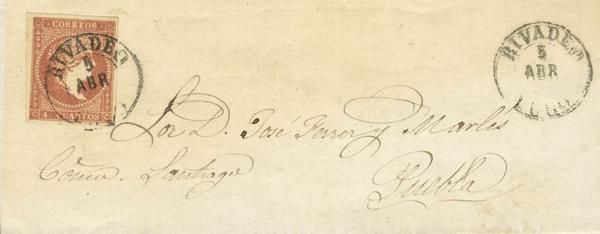 CORREOS
RIVADEO
5
ABR
4 CUATROS
RIVADEO
5
ABR
LUGO
Sor D. José Ferrer y Martés
Coma. Santiago
Puebla